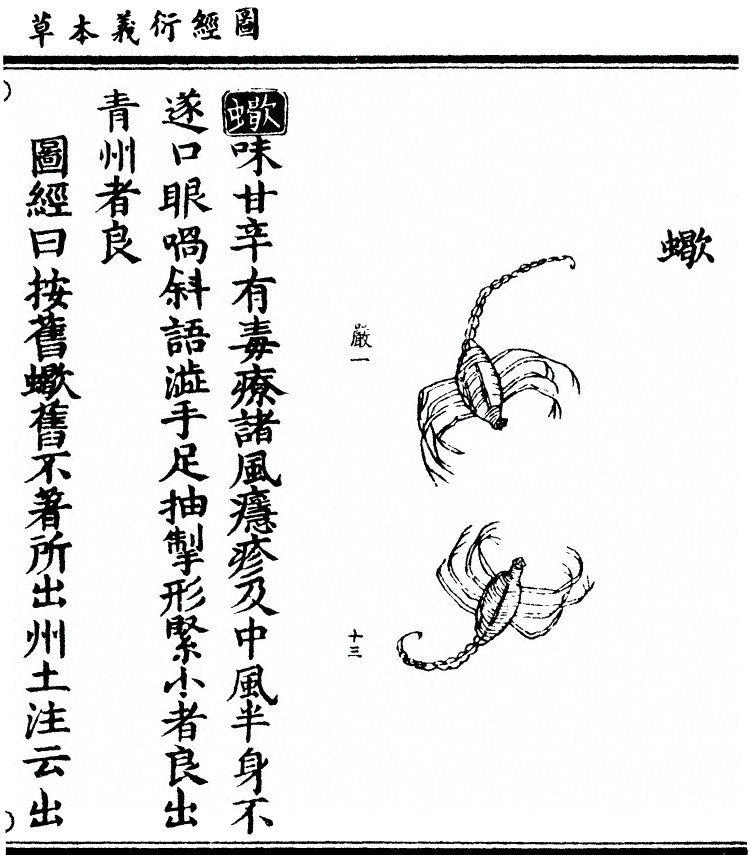 圖經衍義本草
蠍
嚴一
十三
蠍味甘辛有毒療諸風癮疹及中風半身不
遂口眼喎斜語澁手足抽掣形緊小者良出
青州者良
圖經曰按舊蠍舊不著所出州土注云出